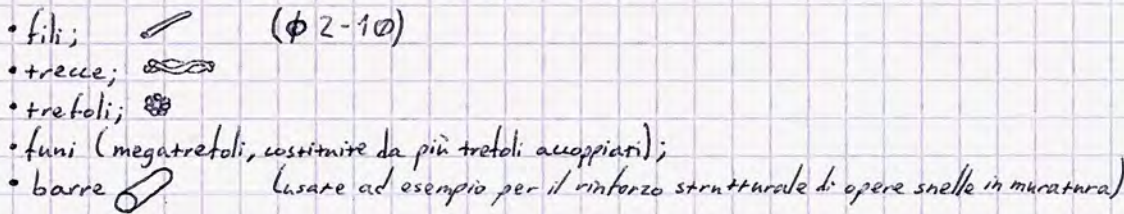 • fili; (ϕ 2-10)
• trecce;
• trefoli;
• funi (megatrefoli, costituite da più trefoli accoppiati);
• barre (usate ad esempio per il rinforzo strutturale di opere snelle in muratura)